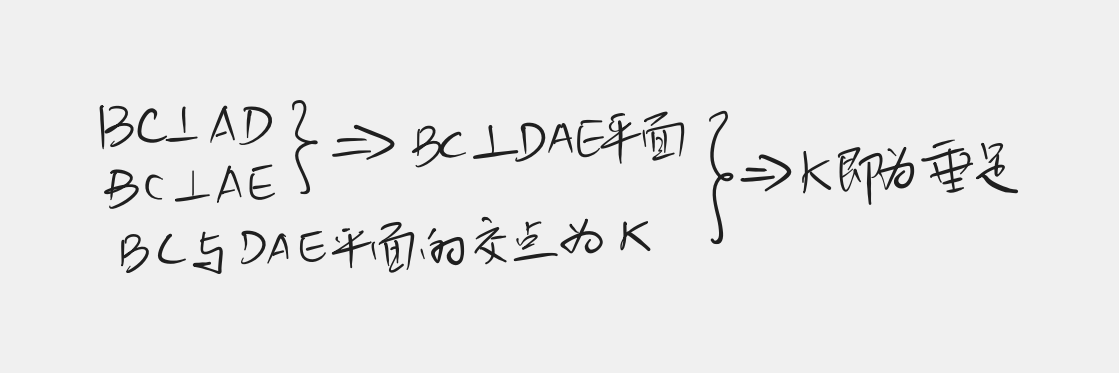 BC⊥AD
BC⊥AE } ⇒ BC⊥DAE平面
BC与DAE平面的交点为K } ⇒ K即为垂足